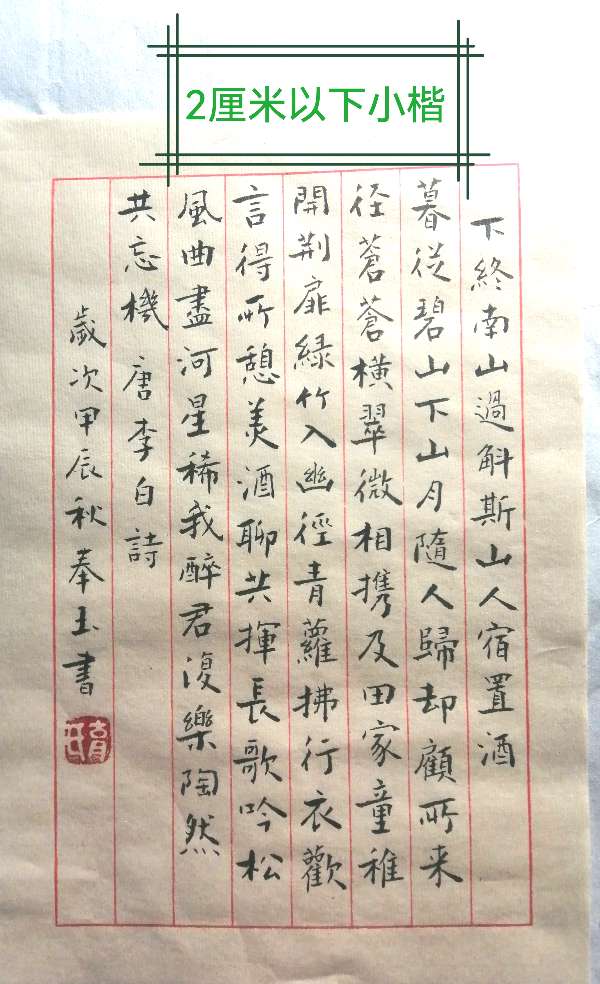 2厘米以下小楷
下終南山過斛斯山人宿置酒
暮從碧山下山月隨人歸却顧所来
径蒼蒼橫翠微相携及田家童稚
開荆扉緑竹入幽徑青蘿拂行衣歡
言得所憩美酒聊共揮長歌吟松
風曲盡河星稀我醉君復樂陶然
共忘機 唐李白詩
歲次甲辰秋奉玉書